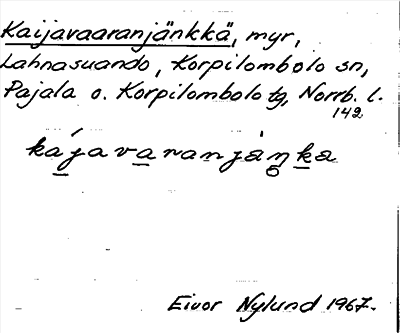 Kaijavaaranjänkkä, myr,
Lahnasuando, Korpilombolo sn,
Pajala o. Korpilombolo tg, Norrb. l.
142
kájavaranjàŋka
Eivor Nylund 1967.